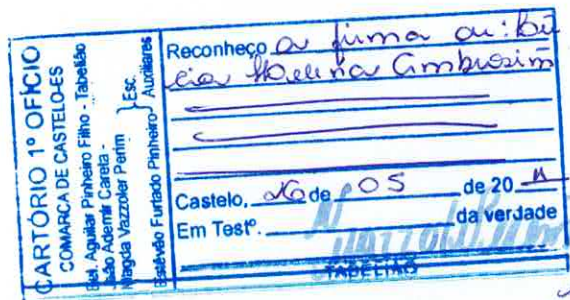 CARTÓRIO 1º OFÍCIO
COMARCA DE CASTELO-ES
Bel. Aguilar Pinheiro Filho - Tabelião
João Ademir Careta -
Magda Vazzoler Perim
Estêvão Furtado Pinheiro
Esc.
Auxiliares
Reconheço a firma de: Lú
cia Helena Ambrosim
Castelo, 26 de 05 de 20 11
Em Testº. da verdade
TABELIÃO